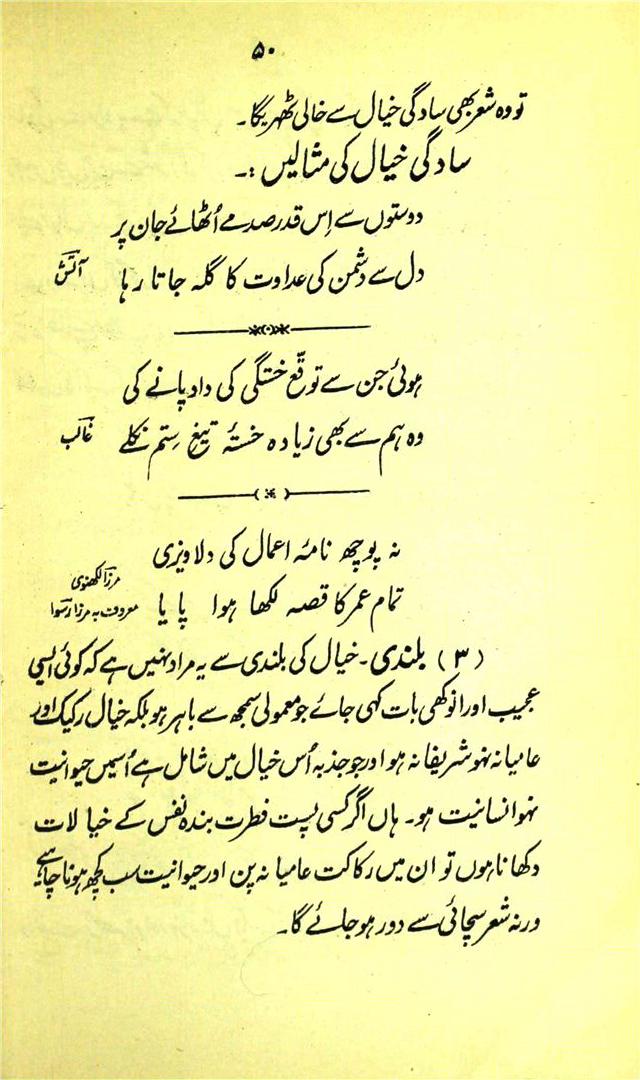 ۵۰
تو وہ شعر بھی سادگی خیال سے خالی ٹھہریگا۔
سادگی خیال کی مثالیں :۔
دوستوں سے اِس قدر صدمے اُٹھائے جان پر
دل سے دشمن کی عداوت کا گلہ جاتا رہا آتش
ہوئی جن سے توقّع خستگی کی داد پانے کی
وہ ہم سے بھی زیادہ خستۂ تیغِ سِتم نکلے غالب
نہ پوچھ نامۂ اعمال کی دلاویزی
تمام عمر کا قصہ لکھا ہوا پایا مرزا لکھنوی
معروف بہ مرزا رسوا
(۳) بلندی۔ خیال کی بلندی سے یہ مراد نہیں ہے کہ کوئی ایسی
عجیب اور انوکھی بات کہی جائے جو معمولی سمجھ سے باہر ہو بلکہ خیال رکیک اور
عامیانہ نہو شریفانہ ہو اور جو جذبہ اُس خیال میں شامل ہے اُسمیں حیوانیت
نہو انسانیت ہو۔ ہاں اگر کسی پست فطرت بندہ نفس کے خیالات
دکھانا ہوں تو ان میں رکاکت عامیانہ پن اور حیوانیت سب کچھ ہونا چاہیے
ورنہ شعر سچائی سے دور ہو جائے گا۔